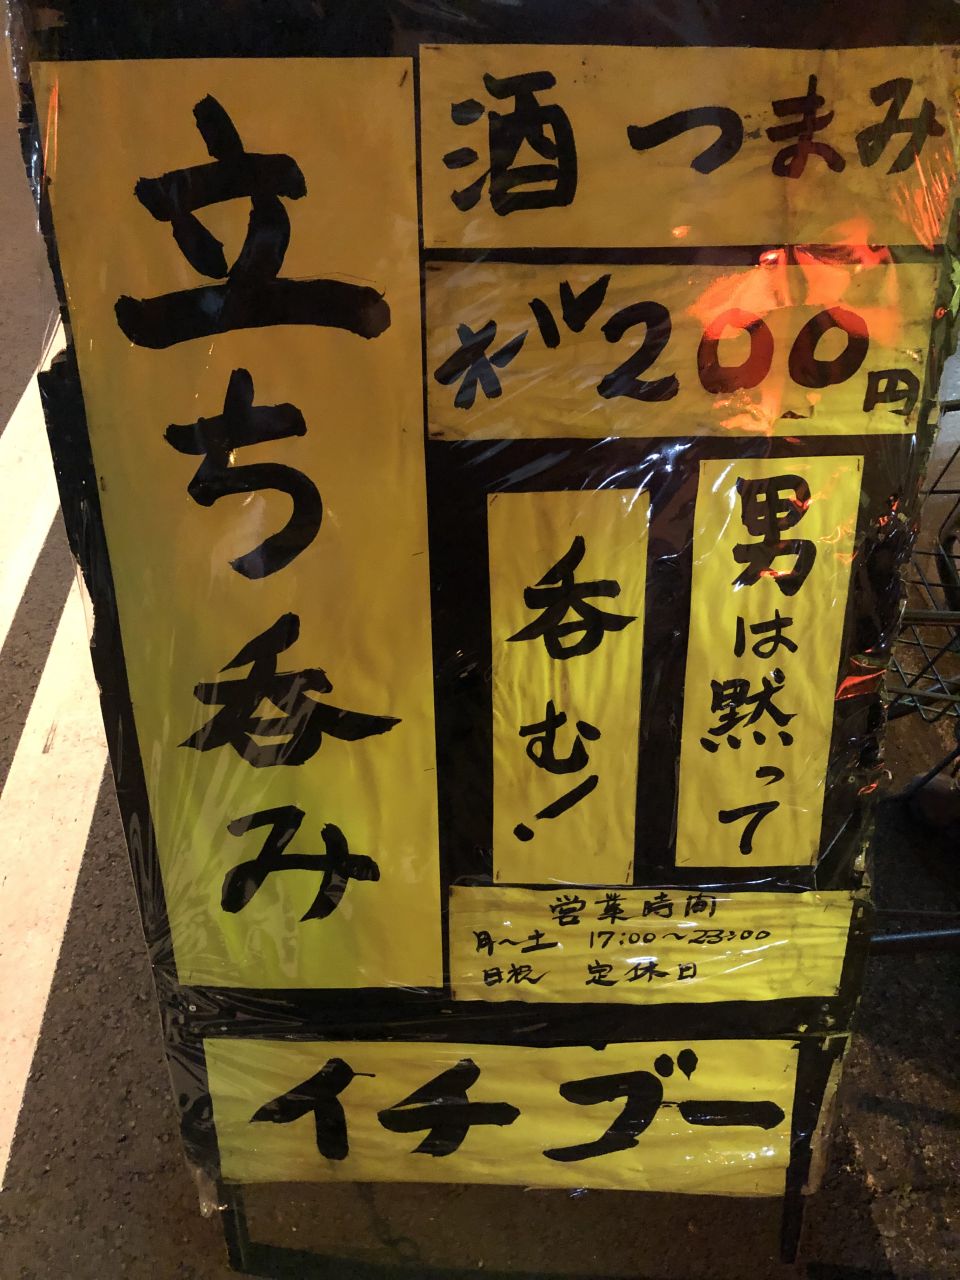 立ち呑み
酒 つまみ
オール200円
男は黙って
呑む!
営業時間
月〜土 17:00〜23:00
日祝 定休日
イチゴー